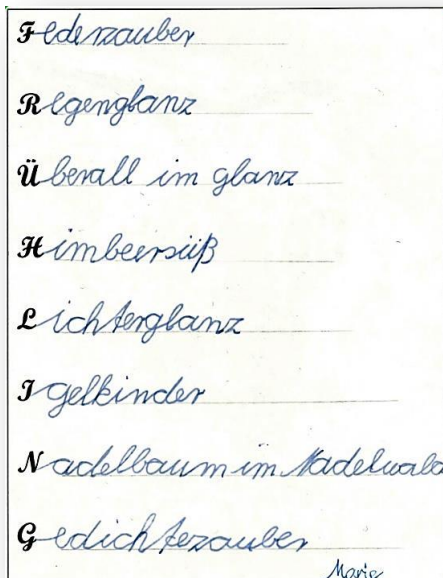 Federzauber
Regenglanz
Überall im glanz
Himbeersüß
Lichterglanz
Igelkinder
Nadelbaum im Nadelwald
Gedichtezauber
Marie